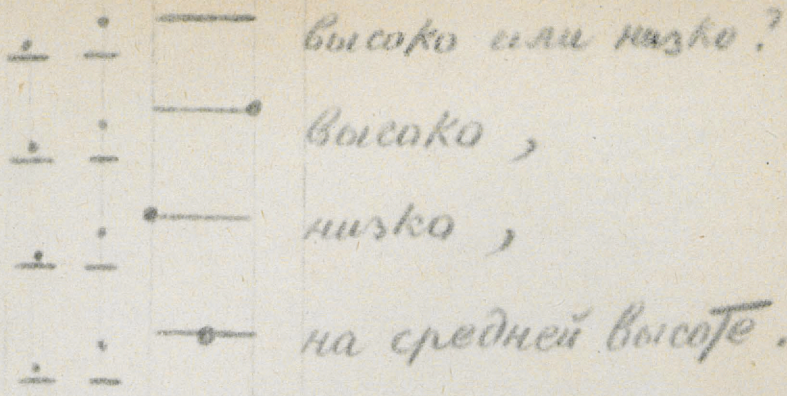 высоко или низко?
высоко,
низко,
на средней высоте.